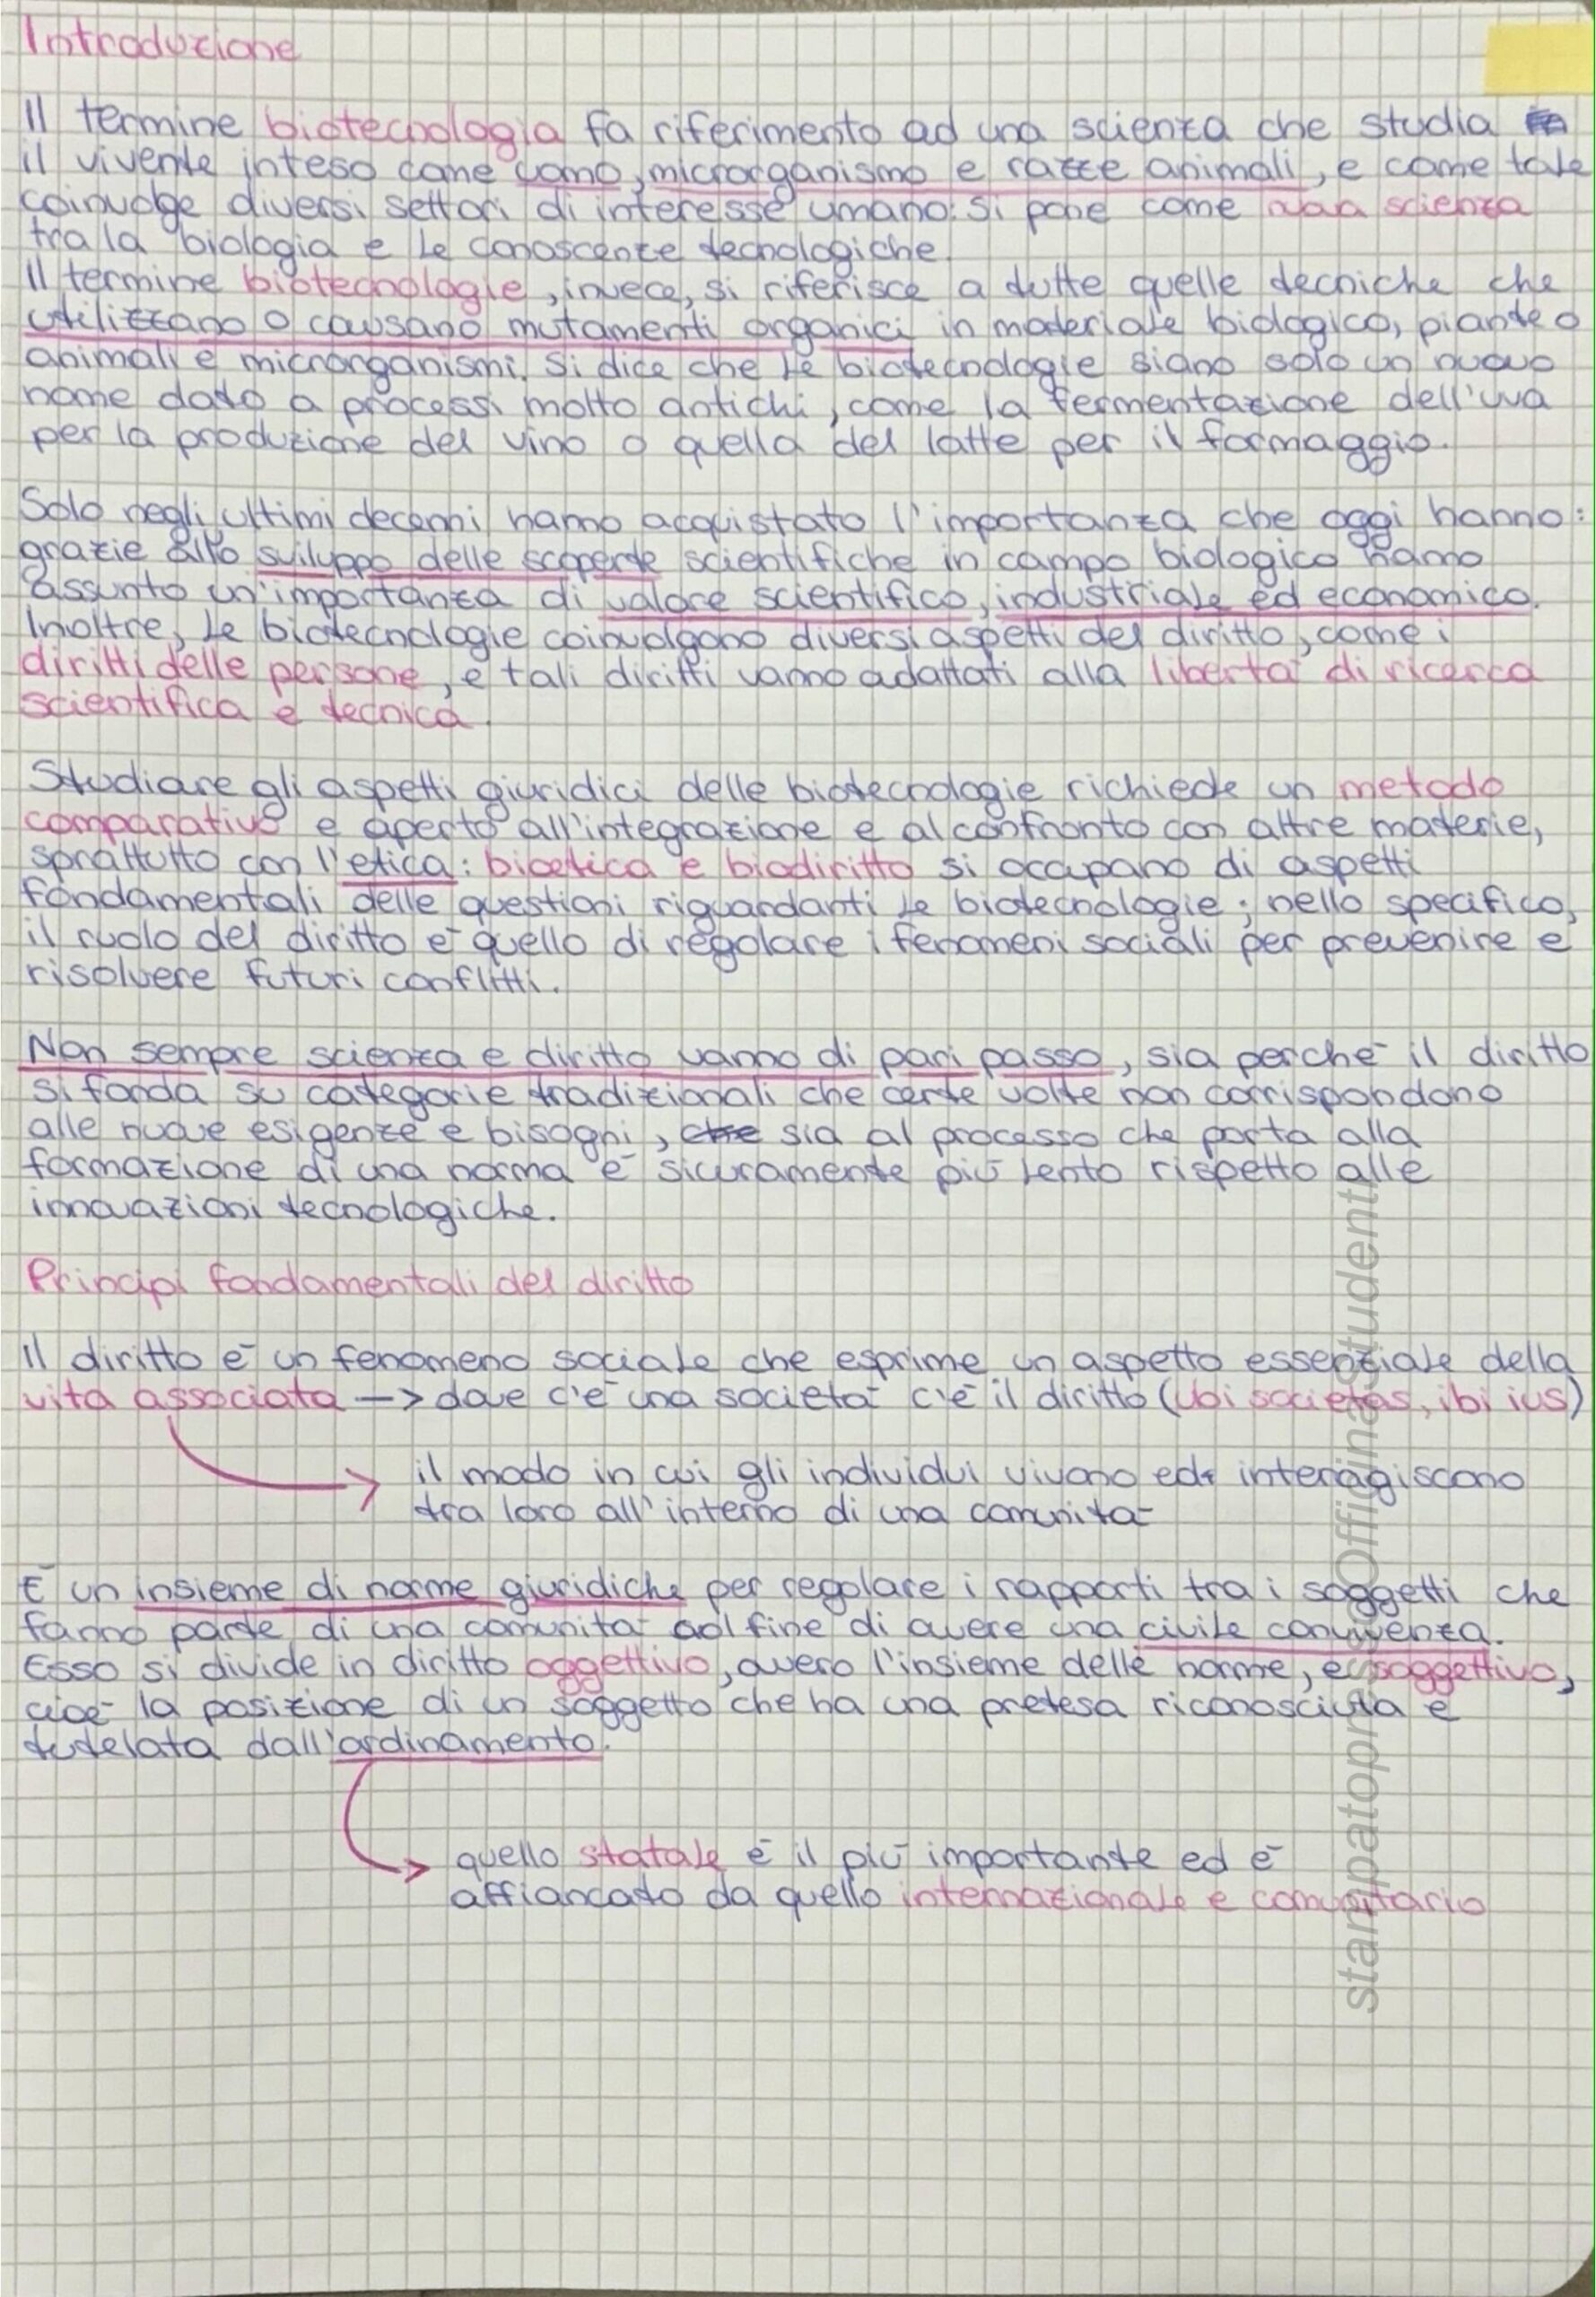 Introduzione
Il termine biotecnologia fa riferimento ad una scienza che studia
il vivente inteso come uomo, microrganismo e razze animali, e come tale
coinvolge diversi settori di interesse umano: si pone come scienza
tra la biologia e le conoscenze tecnologiche.
Il termine biotecnologie, invece, si riferisce a tutte quelle tecniche che
utilizzano o causano mutamenti organici in materiale biologico, piante o
animali e microrganismi. Si dice che le biotecnologie siano solo un nuovo
nome dato a processi molto antichi, come la fermentazione dell'uva
per la produzione del vino o quella del latte per il formaggio.
Solo negli ultimi decenni hanno acquistato l'importanza che oggi hanno:
grazie allo sviluppo delle scoperte scientifiche in campo biologico hanno
assunto un'importanza di valore scientifico, industriale ed economico.
Inoltre, le biotecnologie coinvolgono diversi aspetti del diritto, come i
diritti delle persone, e tali diritti vanno adattati alla libertà di ricerca
scientifica e tecnica.
Studiare gli aspetti giuridici delle biotecnologie richiede un metodo
comparativo e aperto all'integrazione e al confronto con altre materie,
sprattutto con l'etica: bioetica e biodiritto si occupano di aspetti
fondamentali delle questioni riguardanti le biotecnologie; nello specifico,
il ruolo del diritto è quello di regolare i fenomeni sociali per prevenire e
risolvere futuri conflitti.
Non sempre scienza e diritto vanno di pari passo, sia perché il diritto
si fonda su categorie tradizionali che certe volte non corrispondono
alle nuove esigenze e bisogni, che sia al processo che porta alla
formazione di una norma è sicuramente più lento rispetto alle
innovazioni tecnologiche.
Principi fondamentali del diritto
Il diritto è un fenomeno sociale che esprime un aspetto essenziale della
vita associata —> dove c'è una società c'è il diritto (ubi societas, ibi ius)
il modo in cui gli individui vivono ed interagiscono
tra loro all'interno di una comunità
È un insieme di norme giuridiche per regolare i rapporti tra i soggetti che
fanno parte di una comunità al fine di avere una civile convivenza.
Esso si divide in diritto oggettivo, ovvero l'insieme delle norme, e soggettivo,
cioè la posizione di un soggetto che ha una pretesa riconosciuta e
tutelata dall'ordinamento.
quello statale è il più importante ed è
affiancato da quello internazionale e comunitario
stampatopressoOfficinaStudenti